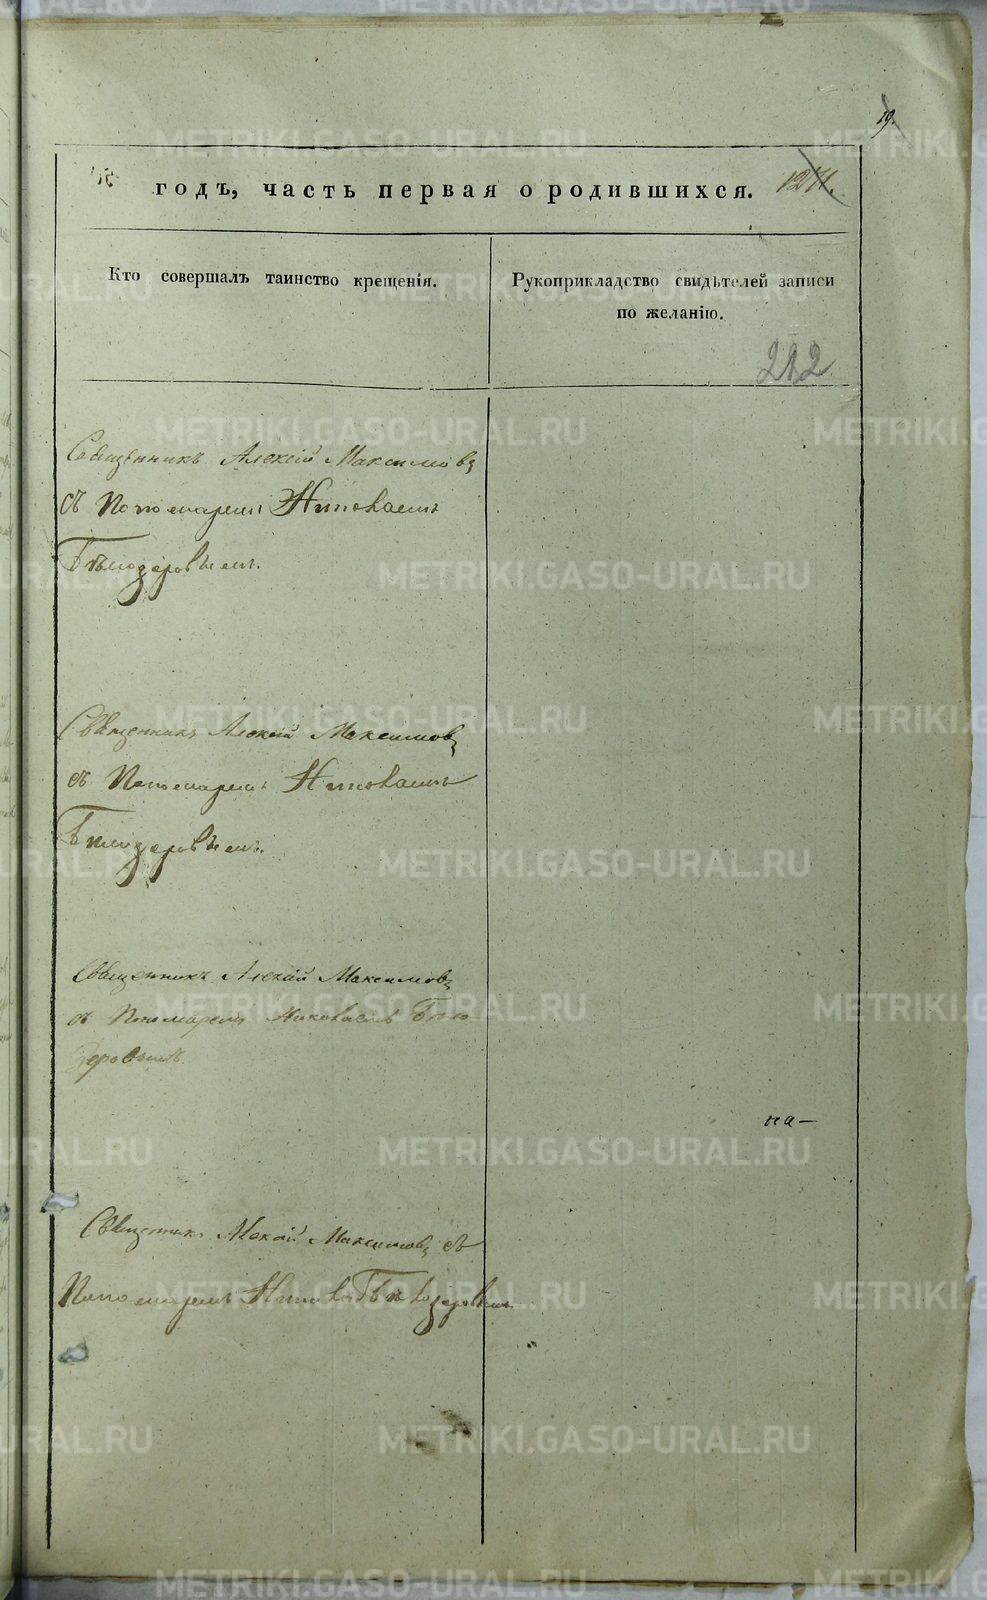 19.
годъ, часть первая о родившихся.
Кто совершалъ таинство крещенія.
Рукоприкладство свидѣтелей записи
по желанію.
212
Священникъ Алексій Максимовъ
съ Пономаремъ Николаемъ
Бѣлозеровымъ.
Священникъ Алексій Максимовъ
съ Пономаремъ Николаемъ
Бѣлозеровымъ.
Священникъ Алексій Максимовъ
съ Пономаремъ Николаемъ Бѣло
зеровымъ.
на-
Священникъ Алексій Максимовъ съ
Пономаремъ Николаемъ Бѣлозеровымъ.
METRIKI.GASO-URAL.RU